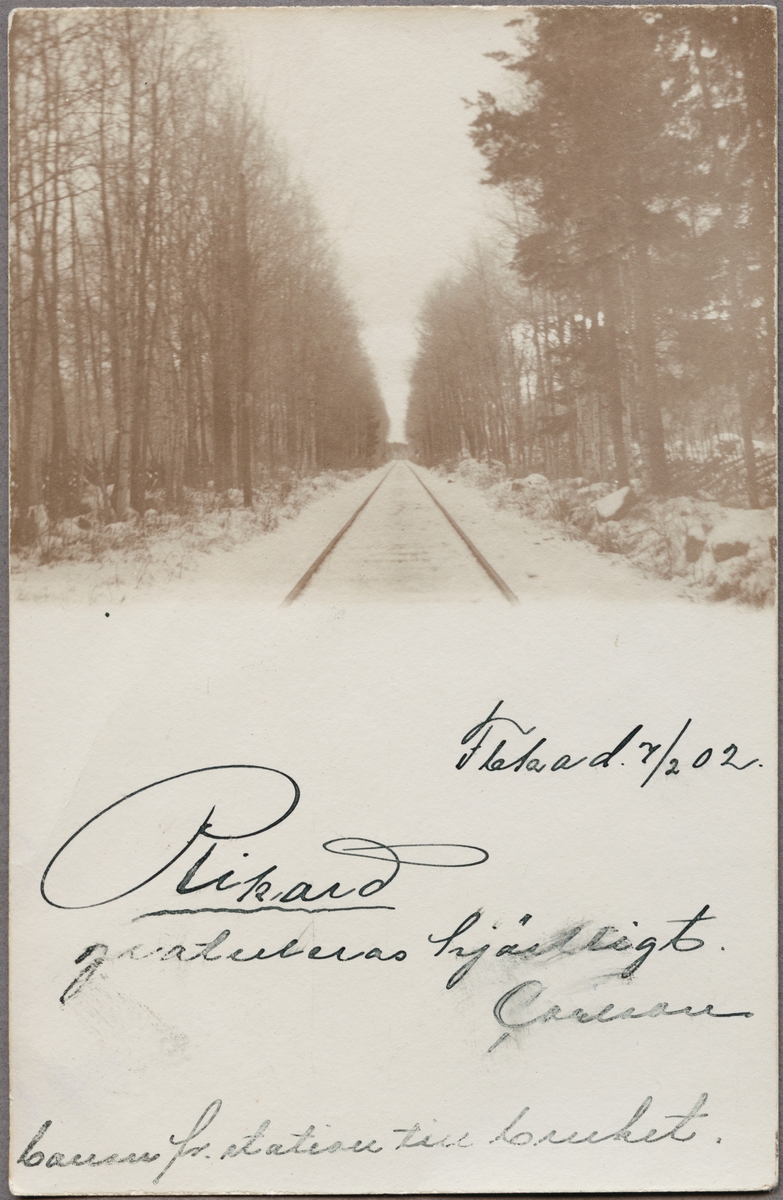 d. 7/2 02.
Rikard
gratuleras hjärtligt.
Carlson
banan fr. station till bruket.